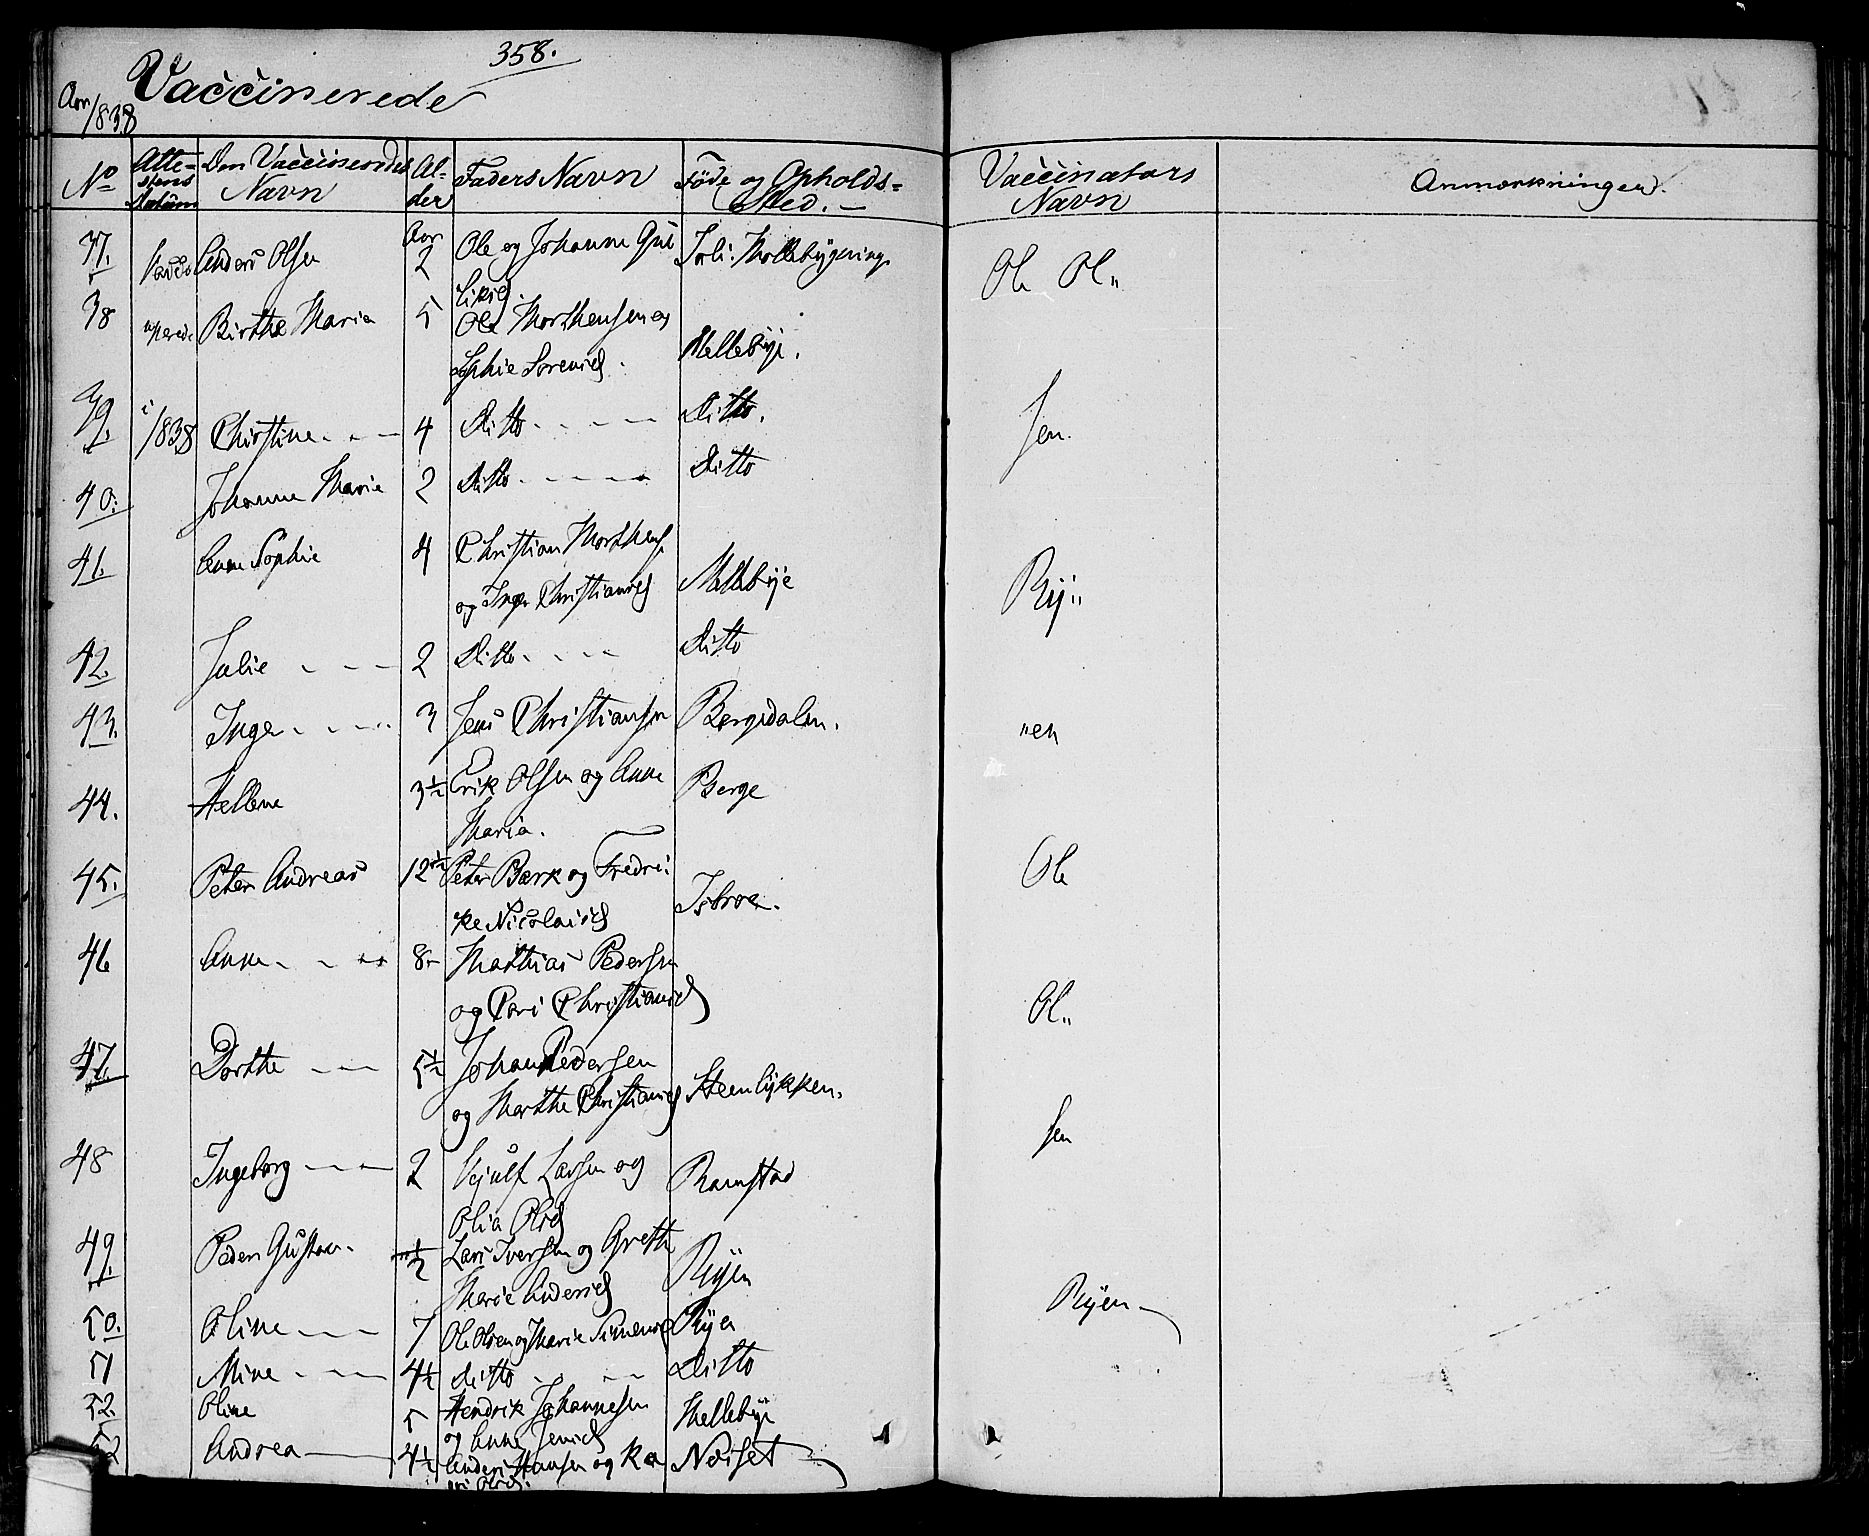 358.
Aar 1838
Vaccinerede
No Attestens Datum Den Vaccineredes Navn Alder Faders Navn Føde og Opholds-Sted. Vaccinators Navn Anmærkninger.
37. Anders Olsen Aar 2 Ole og Johanne Ole Ol"
38 Birthe Maria 5 Ole Morthensen og
Sophie Sörensd. Mellebye.
39. i 1838 Christine 4 Ditto Ditto. sen.
40. Johanne Marie 2 Ditto Ditto
41. Anne Sophie 4 Christian Morthens.
og Inger Christiansd Mellebye Ry"
42. Julie 2 Ditto Ditto
43. Inger 3 Jens Christiansen Bergsdalen. "en
44. Hellene 3½ Erik Olsen og Anne Berge
Maria.
45. Peter Andreas 12½ Peter Bærk og Fredri- Ole
ke Nicolaisd Isbroe.
46 Anne 8 Mathias Pedersen
og Pari Christiansd Ol"
47. Dorthe 5½ Johan Pedersen
og Marthe Christiansd Steenlykken.
sen
48 Ingeborg 2 Larsen og Ramstad
Olia Olsd
49. Peder Gustav. ½ Lars Iversen og Grethe Ryen
Marie Andersd
50. Oline 7 Ole Olsen og Marie Simensd Ryen Ryen
51 Mine 4½ Ditto Ditto
52. Oline 5 Hendrik Johannesen Mellebye
og Anne Jensd
52 Andrea 4½ Anders Hansen og Ka- Noiset
ri Olsd.